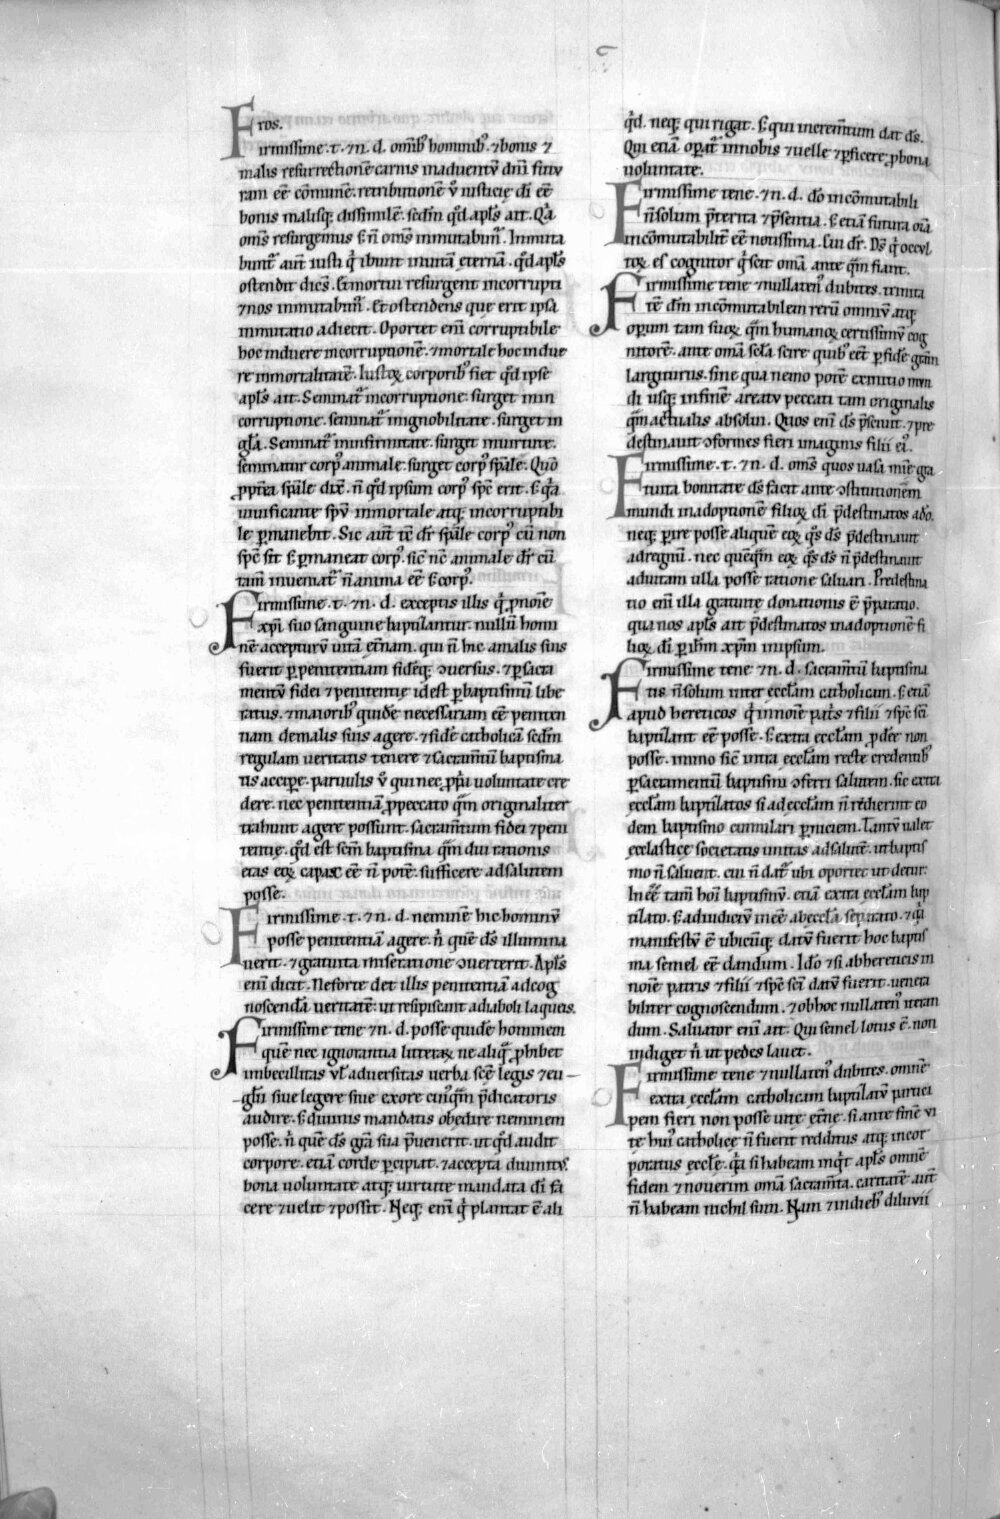 ros.
Firmissime. t. ⁊ n̄. d. om̄ibꝰ hominibꝰ. ⁊ bonis ⁊
malis resurrectionē carnis in aduentv dn̄i futu
ram eē cōmunē. retributionē v̄ iusticię dī eē
bonis malisq; dissimilē. sedm̄ qd̄ apl̄s ait. Qīa
om̄s resurgemus s; n̄ om̄s inmutabim̄. Inmuta
bunt̄ aut̄ iusti qī ibunt in uitā ęternā. qd̄ apl̄s
ostendit dicēs. Et mortui resurgent incorrupti
⁊ nos inmutabim̄. Et ostendens que erit ipsa
inmutatio adiecit. Oportet enī corruptibile
hoc induere incorruptionē. ⁊ mortale hoc indue
re inmortalitatē. Iustoꝝ corporibꝰ fiet qd̄ ipse
apl̄s ait. Seminat̄ in corruptione. surget in in
corruptione. seminat̄ in ignobilitate. surget in
gl̄a. Seminat̄ in infirmitate. surget in uirtute.
seminatur corpꝰ animale. surget corpꝰ sp̄ale. Quō
ꝓpterea sp̄ale dixē. n̄ qd̄ ipsum corpꝰ sp̄c erit. s; qīa
uiuificante sp̄v inmortale atq; incorruptibi
le ꝑmanebit. Sic aut̄ tc̄ dr̄ sp̄ale corpꝰ cū non
sp̄c sit s; ꝑmaneat corpꝰ. sic nc̄ animale dr̄ cū
tam̄ inueniat̄ n̄ anima eē s; corpꝰ.
Firmissime. t. ⁊ n̄. d. exceptis illis qī ꝓ noīe
xp̄i suo sanguine baptizantur. nullū homi
nē accepturv uitā et̄nam. qui n̄ hic a malis suis
fuerit ꝑ penitentiam fidēq; ↄuersus. ⁊ ꝑ sacra
mentv fidei ⁊ penitentię id est ꝑ baptismū libe
ratus. ⁊ maioribꝰ quidē necessariam eē peniten
tiam de malis suis agere. ⁊ fidē catholicā sedm̄
regulam ueritatis tenere ⁊ sacramtū baptisma
tis accipe. paruulis v̄ qui nec ꝓpria uoluntate cre
dere. nec penitentiā ꝓ peccato qm̄ originaliter
trahunt agere possunt. sacramtum fidei ⁊ peni
tentię. qd̄ est scm̄ baptisma qm̄diu rationis
ętas eoꝝ capax eē n̄ potē. sufficere ad salutem
posse.
Firmissime. t. ⁊ n̄. d. neminē hic hominv
posse penitentiā agere. nī quē ds̄ illumina
uerit. ⁊ gratuita miseratione ↄuerterit. Apl̄s
enī dicit. Ne forte det illis penitentiā ad cog
noscendā ueritatē. ut resipiscant a diaboli laqueis.
Firmissime tene ⁊ n̄. d. posse quidē hominem
quē nec ignorantia litteraꝝ ne aliq̄ ꝓhibet
imbecillitas vl̄ aduersitas uerba scē legis ⁊ eu
glīi siue legere siue ex ore cuiꝰqm̄ p̄dicatoris
audire. s; diuinis mandatis obędire neminem
posse. nī quē ds̄ grā sua p̄uenerit. ut qd̄ audit
corpore. etiā corde ꝑcipiat. ⁊ accepta diuinitꝰ
bona uoluntate atq; uirtute mandata dī fa
cere ⁊ uelit ⁊ possit. Neq; enī qī plantat ē ali
qd̄. neq; qui rigat. s; qui incremtum dat ds̄.
Qui etiā oꝑat̄ in nobis ⁊ uelle ⁊ ꝑficere ꝓ bona
uoluntate.
Firmissime tene. ⁊ n̄. d. dō incōmutabili
n̄ solum p̄terita ⁊ p̄sentia. s; etiā futura oīa
incōmutabilit̄ eē notissima. Cui dr̄. Ds̄ qī occul
toꝝ es cognitor qī scit om̄a ante qm̄ fiant.
Firmissime tene ⁊ nullaten̄ dubites. trinita
tē dm̄ incōmutabilem rerū omniv atq;
operum tam suoꝝ qm̄ humanoꝝ certissimv cog
nitorē. ante om̄a scl̄a scire quibꝰ eēt ꝑ fidē grām
largiturus. sine qua nemo potē ex initio mun
di usq; in finē a reatv peccati tam originalis
qm̄ actualis absolui. Quos enī ds̄ p̄sciuit. ⁊ pre
destinauit ↄformes fieri imaginis filii eiꝰ.
Firmissime. t. ⁊ n̄. d. om̄s quos uasa mīe gra
tuita bonitate ds̄ facit ante ↄstitutionem
mundi in adoptionē filioꝝ dī p̄destinatos a dō.
neq; ꝑire posse aliquē eoꝝ qs̄ ds̄ p̄destinauit
ad regnū. nec quēqm̄ eoꝝ qs̄ ds̄ n̄ p̄destinauit
ad uitam ulla posse ratione saluari. Predestina
tio enī illa gratuitę donationis ē p̄paratio.
qua nos apl̄s ait p̄destinatos in adoptionē fi
lioꝝ dī ꝑ ih̄m xp̄m in ipsum.
Firmissime tene ⁊ n̄. d. sacramtū baptisma
tis n̄ solum inter eccl̄am catholicam. s; etiā
apud hereticos qī in noīe pat̄s ⁊ filii ⁊ sp̄c scī
baptizant eē posse. s; extra eccl̄am ꝓdēe non
posse. immo sic̄ intra eccl̄am recte credentibꝰ
ꝑ sacramentū baptismi ↄferri salutem. sic extra
eccl̄am baptizatos si ad eccl̄am n̄ redierint eo
dem baptismo cumulari ꝑniciem. Tantv ualet
eccl̄asticę societatis unitas ad salutē. ut baptis
mo n̄ saluent̄. cui n̄ dat̄ ubi oportet ut detur.
Inēē tam̄ hoī baptismv. etiā extra eccl̄am bap
tizato. s; ad iudiciv inēē ab eccl̄a separato. ⁊ qīa
manifestv ē ubicūq; datv fuerit hoc baptis
ma semel eē dandum. Idō ⁊ si ab hereticis in
noīe patris ⁊ filii ⁊ sp̄c scī datv fuerit. uenera
biliter cognoscendum. ⁊ ob hoc nullaten̄ iteran
dum. Saluator enī ait. Qui semel lotus ē. non
indiget nī ut pedes lauet.
Firmissime tene ⁊ nullaten̄ dubites. omnē
extra eccl̄am catholicam baptizatv participem fieri non posse uitę et̄nę. si ante finē vi
tę huiꝰ catholicę n̄ fuerit redditus atq; incor
poratus eccl̄ę. qīa si habeam inqt̄ apl̄s omnē
fidem ⁊ nouerim om̄a sacramta. caritatē aut̄
n̄ habeam nichil sum. Nam ⁊ in diebꝰ diluvii